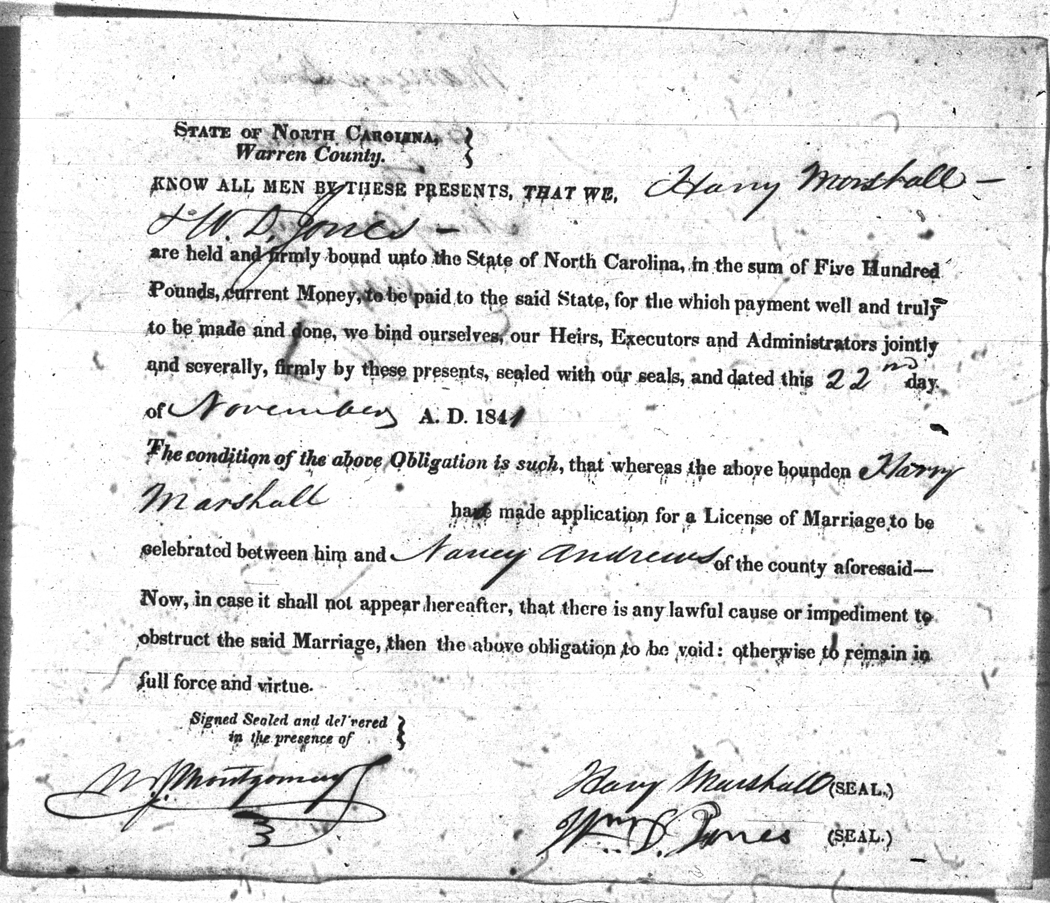 STATE OF NORTH CAROLINA, }
Warren County.
KNOW ALL MEN BY THESE PRESENTS, THAT WE, Harry Marshall —
& W. D. Jones —
are held and firmly bound unto the State of North Carolina, in the sum of Five Hundred
Pounds, current Money, to be paid to the said State, for the which payment well and truly
to be made and done, we bind ourselves, our Heirs, Executors and Administrators jointly
and severally, firmly by these presents, sealed with our seals, and dated this 22nd day
of November A. D. 1841
The condition of the above Obligation is such, that whereas the above bounden Harry
Marshall have made application for a License of Marriage to be
celebrated between him and Nancy Andrews of the county aforesaid—
Now, in case it shall not appear hereafter, that there is any lawful cause or impediment to
obstruct the said Marriage, then the above obligation to be void: otherwise to remain in
full force and virtue.
Signed Sealed and del'vered }
in the presence of
Montgomery
Harry Marshall (SEAL.)
Wm D. Jones (SEAL.)